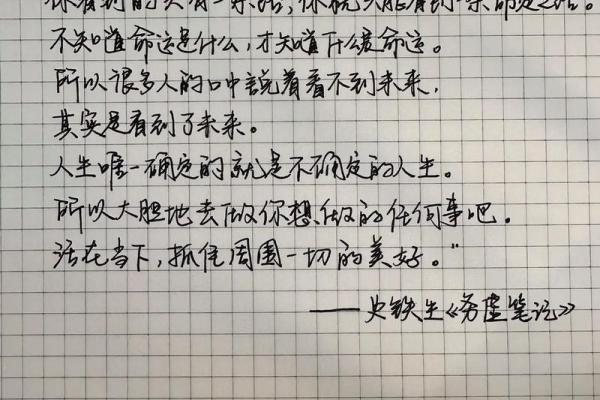 你看到的只有一条路，你就只能看到一条命定之路。
不知道命运是什么，才知道什么是命运。
所以很多人的口中说着看不到未来，
其实是看到了未来。
人生唯一确定的就是不确定的人生。
所以大胆地去做你想做的任何事吧。
活在当下，抓住周围一切的美好。”
——史铁生《务虚笔记》